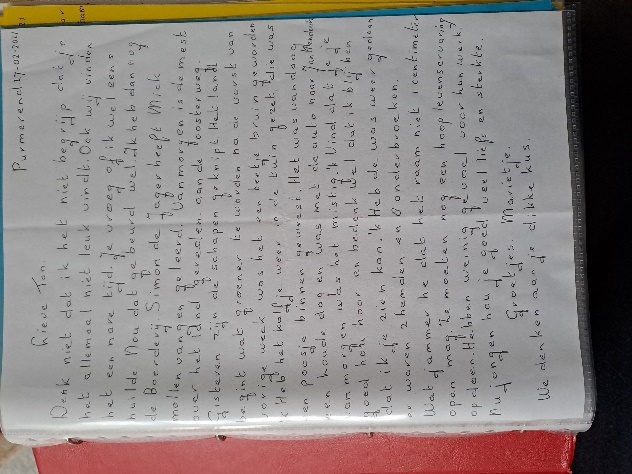 Purmerend 17-02-2021
Lieve Ton.
Denk niet dat ik het niet begrijp dat je
het allemaal niet leuk vindt. Ook wij vinden
het een nare tijd. Je vroeg of ik wel eens
huilde. Nou dat gebeurd wel. Ik heb dan nog
de Boerderij Simon de Jager heeft Mick
mollen vangen geleerd. Vanmorgen is de mest
over het land gereden aan de oosterweg.
Gisteren zijn de schapen geknipt. Het land
begint wat groener te worden na de vorst van
vorige week was het een beetje bruin geworden
Ik Heb het kalfje weer in de tuin gezet, die was
een poosje binnen geweest. Het was vandaag
een koude dag en was met de auto naar
vanmorgen was het mistig. Ik vind dat jij je
goed hoor en bedenk wel dat ik blij ben
dat ik je zien kan. Ik Heb de was weer gedaan
er waren 2 hemden en 8 onderbroeken.
Wat jammer he dat het raam niet 1 centimeter
open mag. Ze moeten nog een hoop levenservaring
opdoen. Hebben weinig gevoel voor hun werk.
Nu jongen hou je goed, veel liefs en sterkte.
Groetjes. Marietje.
We denken aan je dikke kus.